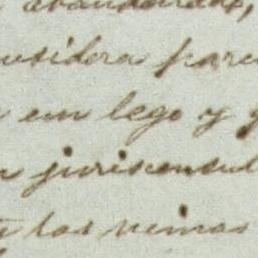 abandonado,
usidera pare
em lego y g
jurisconsul
las neinas